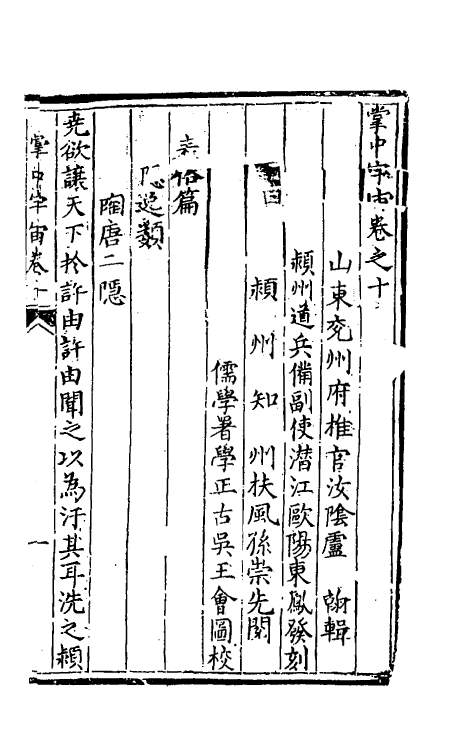 掌中宇宙卷之十
山東兖州府推官汝陰盧　翰輯
頴州道兵備副使潜江歐陽東鳳發刻
頴州知州扶風孫崇先閱
儒學署學正古吳王會圖校
目
篇
逸類
陶唐二隱
堯欲讓天下於許由許由聞之以為汙其耳洗之頴
掌中宇宙卷十
一